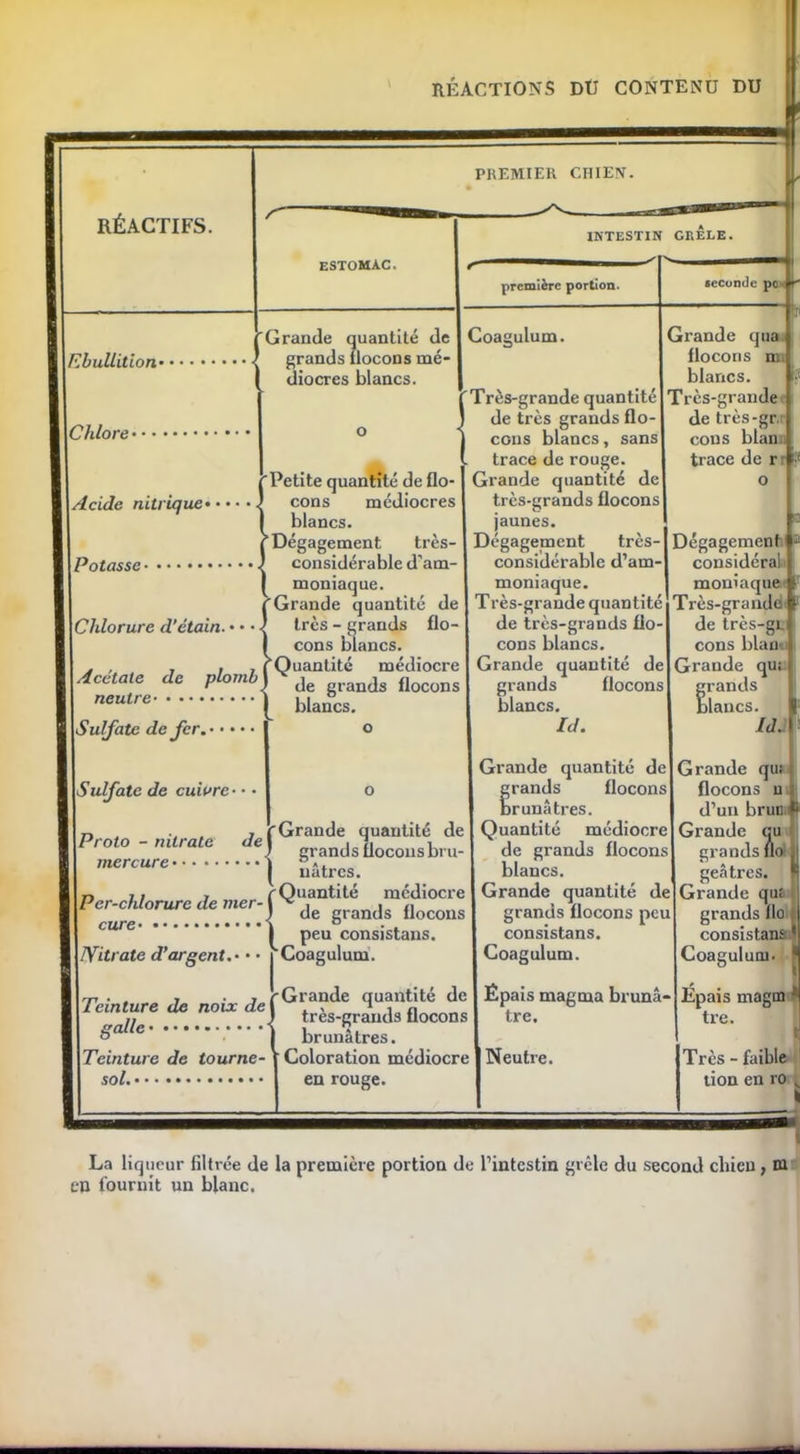 RÉACTIONS DU CONTENU DU
PREMIER CHIEN.
RÉACTIFS.
ESTOMAC.
INTESTIN GRÊLE.
première portion.
seconde
Ebullition·········
Grande quantité de
grands flocons mé-
diocres blancs.
Coagulum.
Grande
flocons
blancs.
Chlore············
o
Très-grande quantité
de très grands flo-
cons blancs, sans
trace de rouge.
Très-grande
de très-
cons
trace de
Acide nitrique·····
Petite quantité de flo-
cons médiocres
blancs.
Grande quantité de
très-grands flocons
jaunes.
o
Potasse···········
Dégagement très-
considérable d'am-
moniaque.
Dégagement très-
considérable d'am-
moniaque.
Dégagement
moniaque
Chlorure d'étain.···
Grande quantité de
très-grands flo-
cons blancs.
Très-grande quantité
de très-grands flo-
cons blancs.
Très-grande
de très-
cons
Acétate de plomb
neutre··········
Quantité médiocre
de grands flocons
blancs.
Grande quantité de
grands flocons
blancs.
Grande
grands
blancs.
Sulfate de fer.·····
o
Id.
Id.
Sulfate de cuivre···
o
Grande quantité de
grands flocons
brunâtres.
Grande
flocons
d'un
Proto-nitrate de
mercure·········
Grande quantité de
grands flocons bru-
nâtres.
Quantité médiocre
de grands flocons
blancs.
Grande
grands
geâtres.
Per-chlorure de mer-
cure············
Quantité médiocre
de grands flocons
peu consistans.
Grande quantité de
grands flocons peu
consistans.
Grande
grands
consistans
Nitrate d'argent.···
Coagulum.
Coagulum.
Coagulum.
Teinture de noix de
galle···········
Grande quantité de
très-grands flocons
brunâtres.
Épais magma brunâ-
tre.
Épais
tre.
Teinture de tourne-
sol.·············
Coloration médiocre
en rouge.
Neutre.
Très-faible
tion en
La liqueur filtrée de la première portion de l'intestin grêle du second chien,
en fournit un blanc.